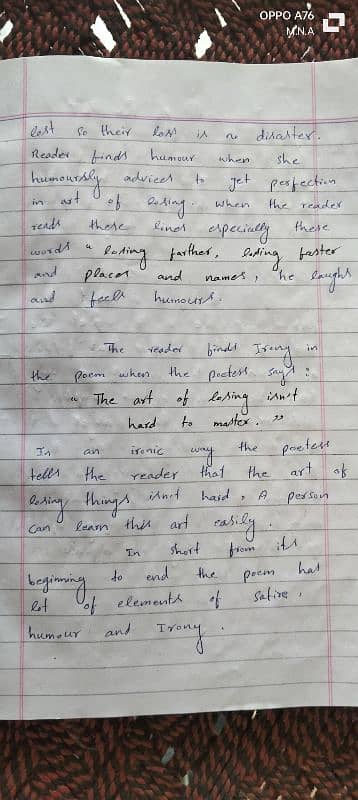 OPPO A76
M.N.A
lost so their loss is no disaster.
Reader finds humour when she
humoursly advices to get perfection
in art of losing. when the reader
reads these lines especially these
words " losing farther, losing faster
and places and names, he laughs
and feels humours.
The reader finds Irony in
the poem when the poetess says :
" The art of losing isn't
hard to master. "
In an ironic way the poetess
tells the reader that the art of
losing things isn't hard, A person
can learn this art easily.
In short from its
beginning to end the poem has
lot of elements of satire,
humour and Irony.